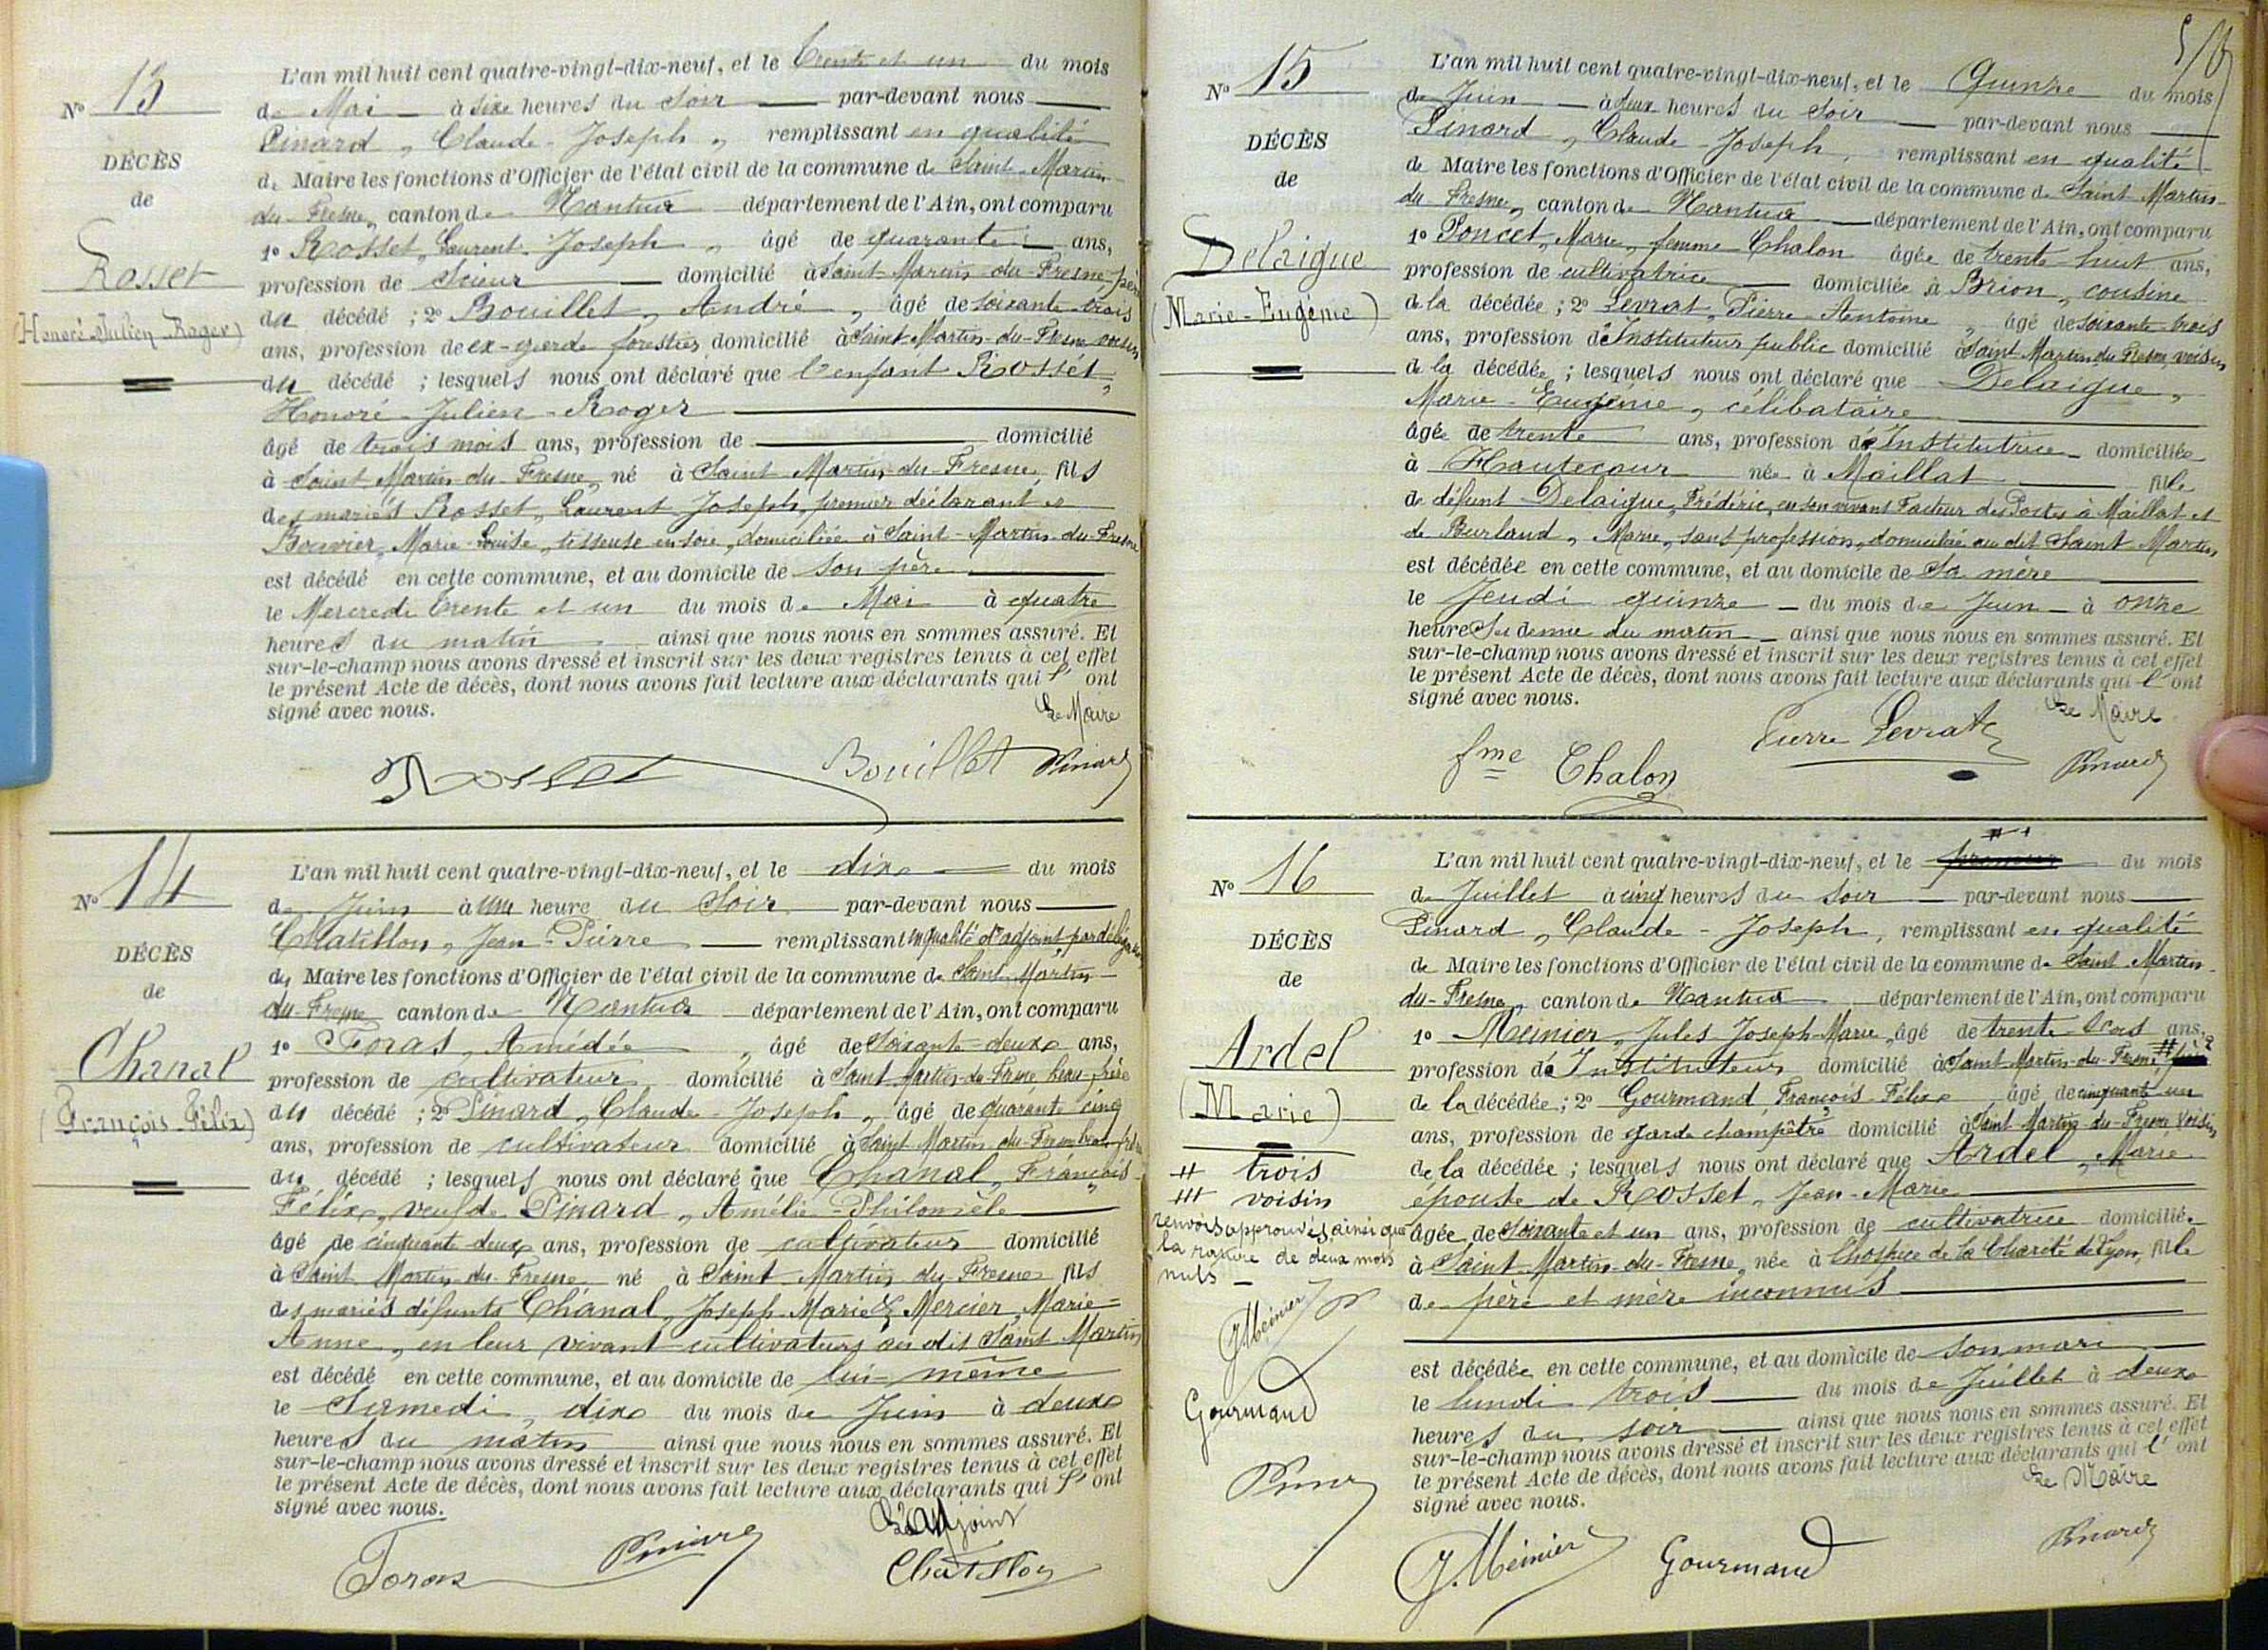 N° 13
DÉCÈS
de
Rosset
(Honoré-Julien-Roger)
L'an mil huit cent quatre-vingt-dix-neuf, et le trente et un du mois
de Mai à six heures du soir par-devant nous
Pinard, Claude-Joseph, remplissant en qualité
de Maire les fonctions d'Officier de l'état civil de la commune de Saint-Martin-
du-Fresne, canton de Nantua département de l'Ain, ont comparu
1° Rosset, Laurent Joseph, âgé de quarante ans,
profession de Scieur domicilié à Saint-Martin-du-Fresne, père
du décédé ; 2° Bouillet, André, âgé de soixante-trois
ans, profession de ex-garde forestier domicilié à Saint-Martin-du-Fresne voisin
du décédé ; lesquels nous ont déclaré que l'enfant Rosset,
Honoré-Julien-Roger
âgé de trois mois ans, profession de domicilié
à Saint Martin-du-Fresne, né à Saint Martin-du-Fresne, fils
des mariés Rosset, Laurent-Joseph, premier déclarant et
Bouvier, Marie-Louise, tisseuse en soie, domiciliée à Saint-Martin-du-Fresne
est décédé en cette commune, et au domicile de son père
le Mercredi trente et un du mois de Mai à quatre
heures du matin ainsi que nous nous en sommes assuré. Et
sur-le-champ nous avons dressé et inscrit sur les deux registres tenus à cet effet
le présent Acte de décès, dont nous avons fait lecture aux déclarants qui l'ont
signé avec nous.
Le Maire
Rosset Bouillet Pinard
N° 14
DÉCÈS
de
Chanal
(François-Félix)
L'an mil huit cent quatre-vingt-dix-neuf, et le dix du mois
de Juin à une heure du Soir par-devant nous
Chatillon, Jean-Pierre remplissant en qualité d'adjoint par délégation
du Maire les fonctions d'Officier de l'état civil de la commune de Saint-Martin-
du-Fresne canton de Nantua département de l'Ain, ont comparu
1° Foras, Amédée, âgé de Soixante-deux ans,
profession de cultivateur domicilié à Saint Martin-du-Fresne beau-frère
du décédé ; 2° Pinard, Claude-Joseph, âgé de quarante cinq
ans, profession de cultivateur domicilié à Saint Martin-du-Fresne beau-frère
du décédé ; lesquels nous ont déclaré que Chanal, François-
Félix, veuf de Pinard, Amélie-Philomèle
âgé de cinquante deux ans, profession de cultivateur domicilié
à Saint Martin-du-Fresne né à Saint Martin du Fresne fils
des mariés défunts Chanal, Joseph-Marie & Mercier, Marie-
Anne, en leur vivant cultivateurs au dit Saint Martin
est décédé en cette commune, et au domicile de lui-même
le Samedi, dix du mois de Juin à deux
heures du matin ainsi que nous nous en sommes assuré. Et
sur-le-champ nous avons dressé et inscrit sur les deux registres tenus à cet effet
le présent Acte de décès, dont nous avons fait lecture aux déclarants qui l'ont
signé avec nous.
L'adjoint
Foras Pinard Chatillon
N° 15
DÉCÈS
de
Delaigue
(Marie-Eugénie)
L'an mil huit cent quatre-vingt-dix-neuf, et le Quinze du mois
de Juin à deux heures du Soir par-devant nous
Pinard, Claude-Joseph, remplissant en qualité
de Maire les fonctions d'Officier de l'état civil de la commune de Saint-Martin-
du-Fresne, canton de Nantua département de l'Ain, ont comparu
1° Poncet, Marie, femme Chalon âgée de trente-huit ans,
profession de cultivatrice domiciliée à Brion, cousine
de la décédée ; 2° Levrat, Pierre-Antoine, âgé de soixante-trois
ans, profession d'Instituteur public domicilié à Saint Martin du Fresne, voisin
de la décédée ; lesquels nous ont déclaré que Delaigue,
Marie-Eugénie, célibataire
âgée de trente ans, profession d'Institutrice domiciliée
à Hautecour née à Maillat fille
de défunt Delaigue, Frédéric, en son vivant Facteur des Postes à Maillat et
de Burland, Marie, sans profession, domiciliée au dit Saint Martin
est décédée en cette commune, et au domicile de Sa mère
le Jeudi quinze du mois de Juin à onze
heures et demie du matin ainsi que nous nous en sommes assuré. Et
sur-le-champ nous avons dressé et inscrit sur les deux registres tenus à cet effet
le présent Acte de décès, dont nous avons fait lecture aux déclarants qui l'ont
signé avec nous.
Le Maire
fme Chalon Pierre Levrat Pinard
N° 16
DÉCÈS
de
Ardel
(Marie)
# trois
## voisin
renvois approuvés ainsi que
la rature de deux mots
nuls
J Meinier
Gourmand
Pinard
L'an mil huit cent quatre-vingt-dix-neuf, et le premier # du mois
de Juillet à cinq heures du soir par-devant nous
Pinard, Claude-Joseph, remplissant en qualité
de Maire les fonctions d'Officier de l'état civil de la commune de Saint-Martin-
du-Fresne, canton de Nantua département de l'Ain, ont comparu
1° Meinier, Jules-Joseph-Marie, âgé de trente-trois ans,
profession d'Instituteur domicilié à Saint-Martin-du-Fresne, ##
de la décédée ; 2° Gourmand, François-Félix, âgé de cinquante-un
ans, profession de garde champêtre domicilié à Saint-Martin-du-Fresne voisin
de la décédée ; lesquels nous ont déclaré que Ardel, Marie
épouse de Rosset, Jean-Marie
âgée de Soixante et un ans, profession de cultivatrice domiciliée
à Saint-Martin-du-Fresne, née à l'hospice de la Charité de Lyon, fille
de père et mère inconnus
est décédée en cette commune, et au domicile de son mari
le lundi trois du mois de Juillet à deux
heures du soir ainsi que nous nous en sommes assuré. Et
sur-le-champ nous avons dressé et inscrit sur les deux registres tenus à cet effet
le présent Acte de décès, dont nous avons fait lecture aux déclarants qui l'ont
signé avec nous.
Le Maire
J. Meinier Gourmand Pinard